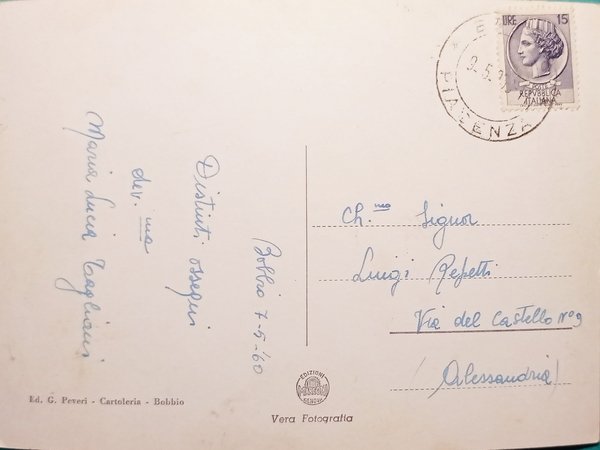 Bobbio 7-5-'60
Distinti ossequi
dev.ma
Maria Lucia Tagliani
Ed. G. Peveri - Cartoleria - Bobbio
LIRE 15
POSTE
REPVBBLICA
ITALIANA
PIACENZA
Ch.mo Signor
Luigi Repetti
Via del Castello N° 9
(Alessandria)
EDIZIONI
GENOVA
Vera Fotografia